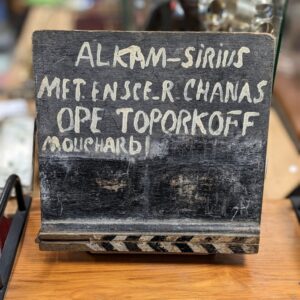 ALKAM-SiRiUS
MET ENSCE.R CHANAS
OPE TOPORKOFF
MOUCHARD!